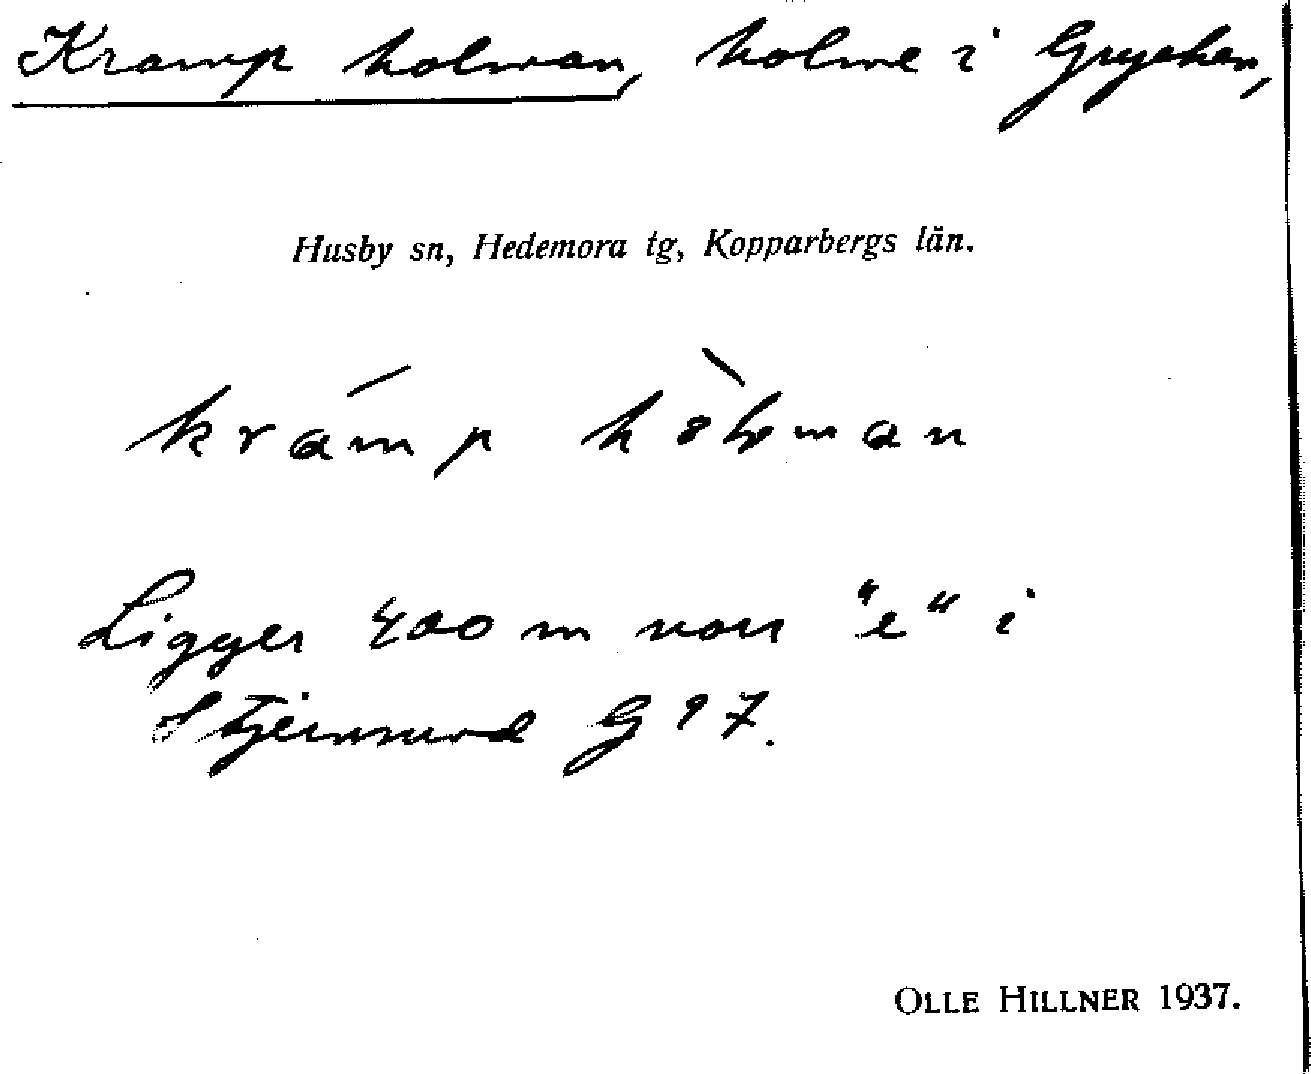 Kramp holman, holme i Grycken,
Husby sn, Hedemora tg, Kopparbergs län.
kramp hòlman
Ligger 400 m norr "e" i
Stjernsund G 97.
OLLE HILLNER 1937.